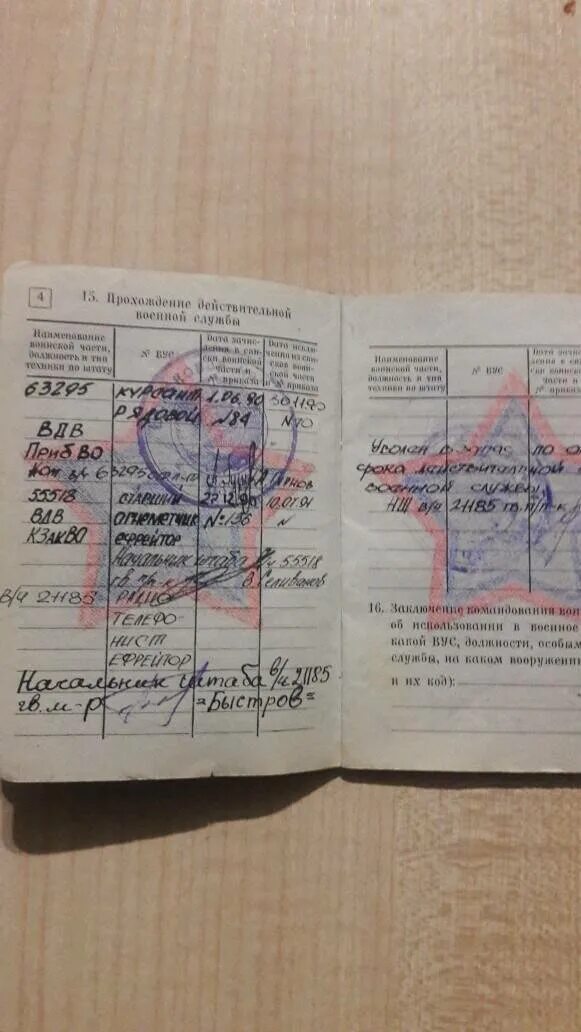 4
15. Прохождение действительной
военной службы
Наименование
воинской части,
должность и тип
техники по штату
№ ВУС
Дата зачис-
ления в спи-
ски воинской
части и
№ приказа
Дата исклю-
чения из спи-
сков воин-
ской части
и № приказа
63295 курсант 1.06.90 30.11.90
рядовой №84 №10
ВДВ
Приб ВО
Ком. в/ч 63295
55518 старший 22.12.90 10.01.91
ВДВ огнеметчик №156 №
КЗакВО ефрейтор
Начальник штаба в/ч 55518
гв. п/п-к Селиванов
в/ч 21185 РАДИО
ТЕЛЕФО-
НИСТ
ЕФРЕЙТОР
Начальник штаба в/ч 21185
гв. м-р =Быстров=
Наименование
воинской части,
должность и тип
техники по штату
№ ВУС
Дата зачис-
ления в спи-
ски воинской
части и
№ приказа
Уволен в запас по
срока действительной
военной службы
НШ в/ч 21185 гв. п/п-к
16. Заключение командования
об использовании в военное
какой ВУС, должности, особым
службы, на каком
и их код):